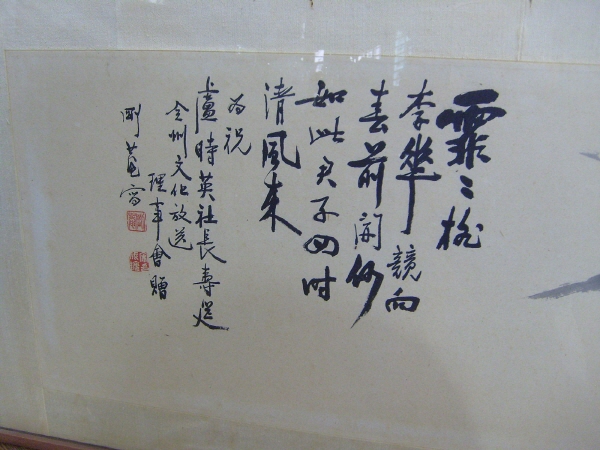 霏〻桃
李華競向
春前開何
如此君子四时
清風来
为祝
盧時英社長壽筵
全州文化放送
理事會贈
剛菴寫